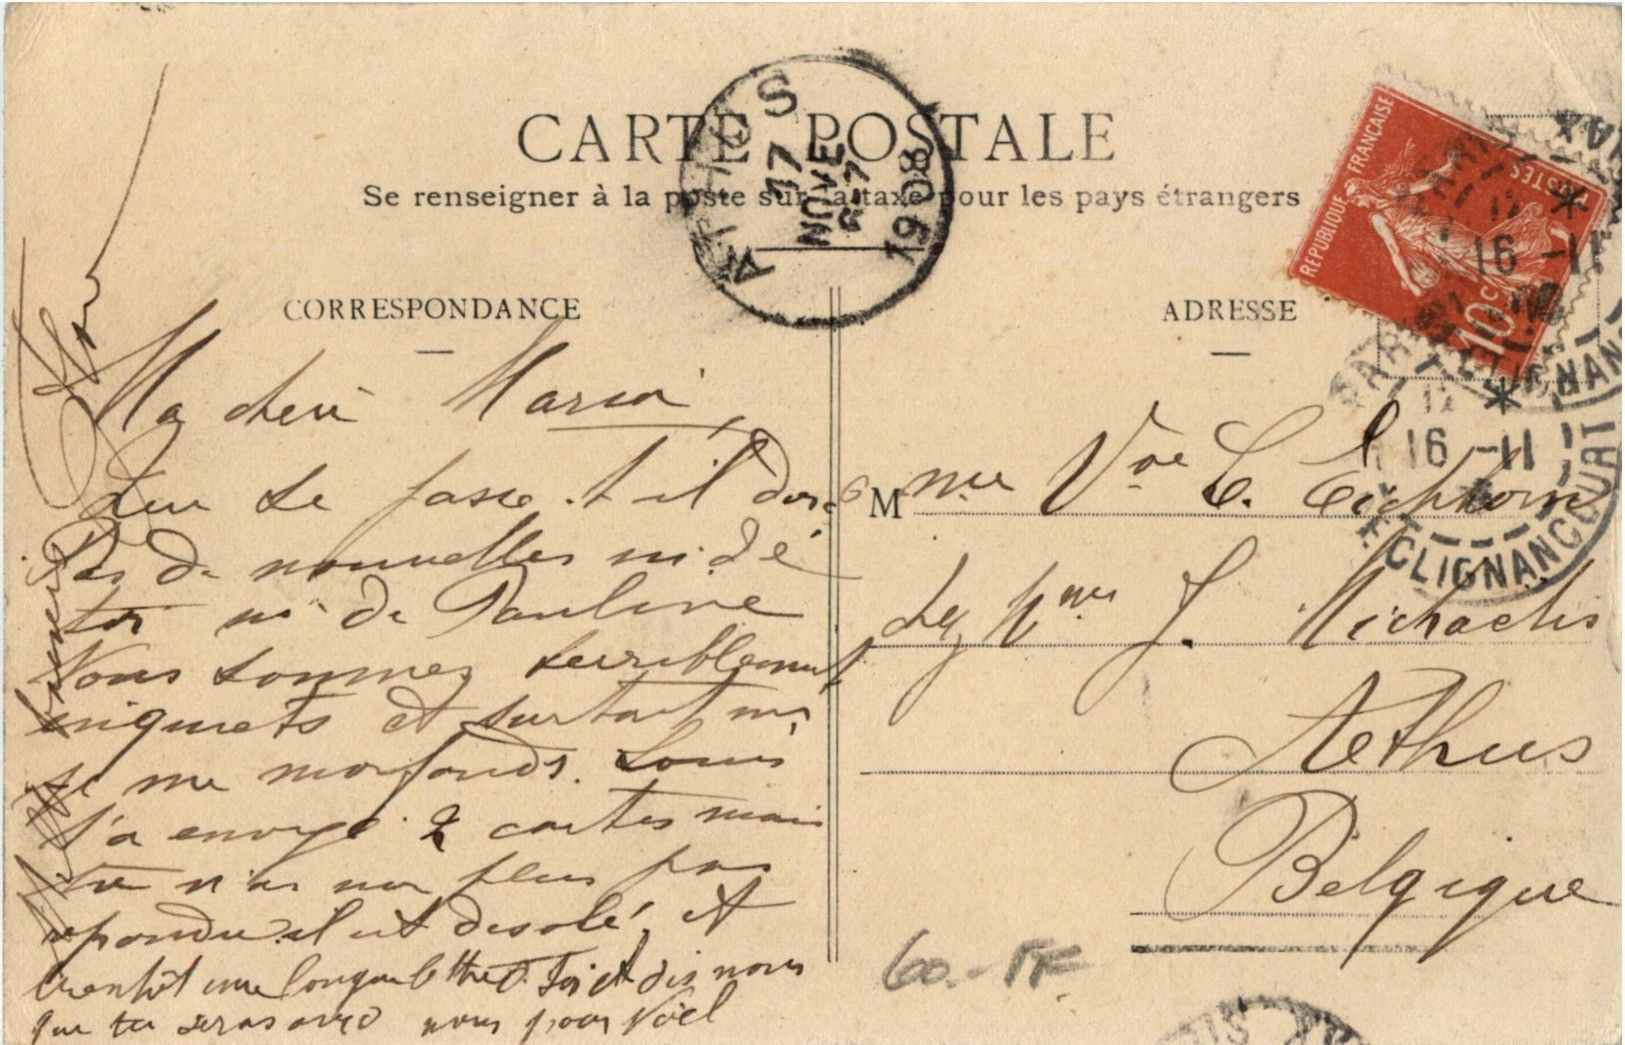 CARTE POSTALE
Se renseigner à la poste sur la taxe pour les pays étrangers
ATHUS
17
NOVE
6-7
1908
REPUBLIQUE FRANÇAISE
POSTES
10c
16-11
16-11
CLIGNANCOURT
CORRESPONDANCE
Ma cheri Maria,
Que se passe-t-il donc
Pas de nouvelles ni de
toi ni de Pauline
Nous sommes terriblement
inquiets et surtout moi
je me morfonds. Louis
t'a envoyé 2 cartes mais
tu n'as non plus pas
repondu il est desolé, et
bientôt une longue lettre de toi et dis nous
que tu seras avec nous pour Noël
ADRESSE
Mme Vve C. Eichhorn
J. Michaelis
Athus
Belgique
60.- FF